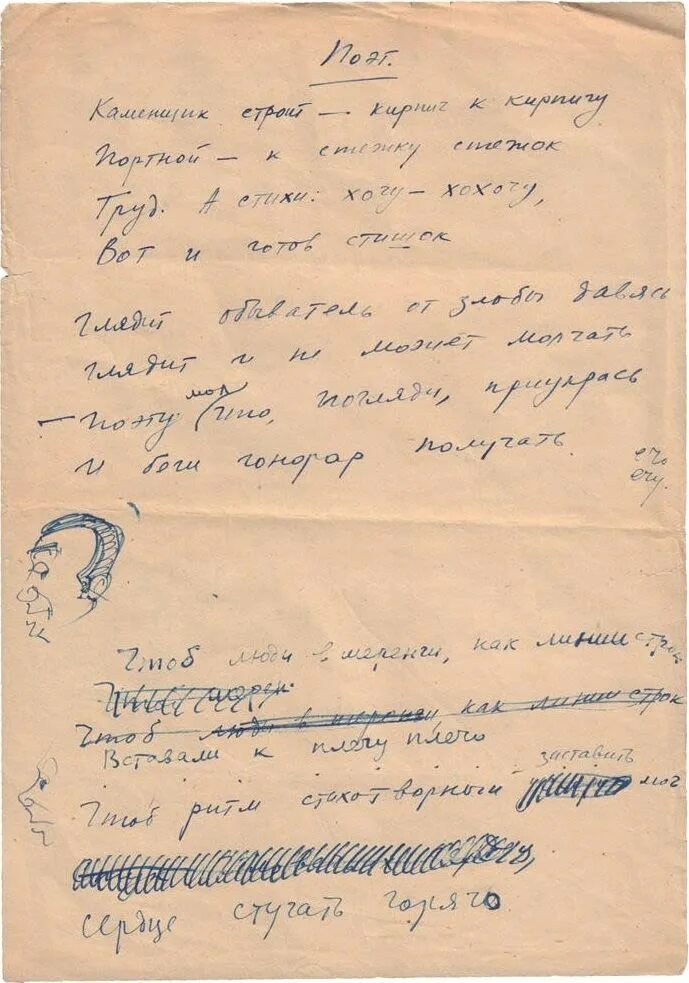 Поэт.
Каменщик строит — кирпич к кирпичу
Портной — к стежку стежок
Труд. А стихи: хочу — хохочу,
Вот и готов стишок
глядит обыватель от злобы давясь
глядит и не может молчать
— Поэту мол что, погляди, приукрась
и беги гонорар получать.
ечо
ечу.
Чтоб люди в шеренги, как линии строк
Чтоб люди в шеренги как линии строк
Вставали к плечу плечо
Чтоб ритм стихотворный заставить мог
сердце стучать горячо